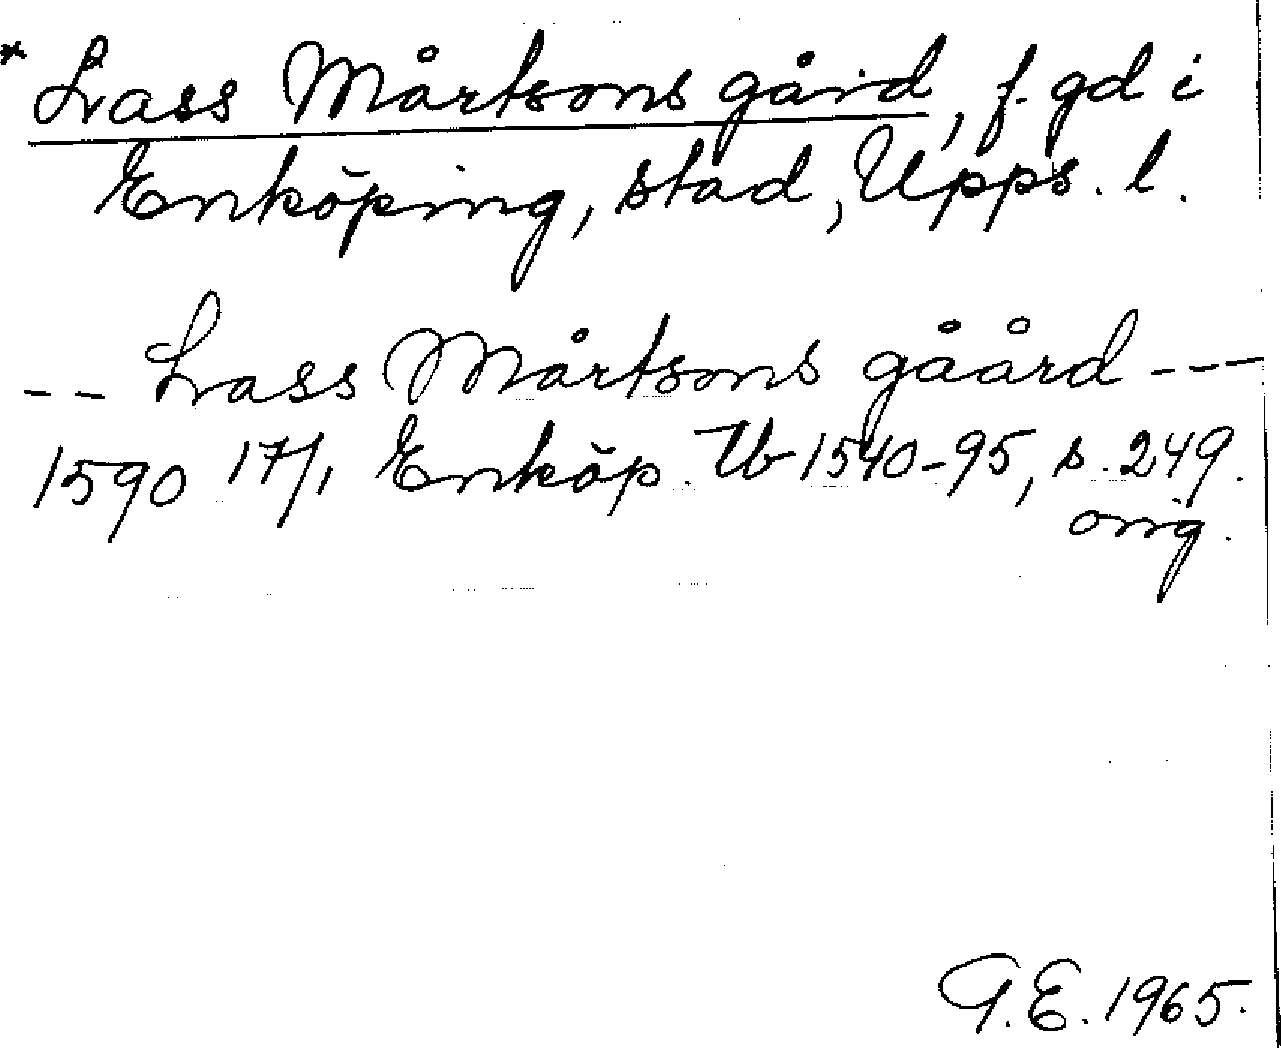 * Lass Mårtsons gård, f. gd i
Enköping, stad, Upps. l.
-- Lass Mårtsons gåård ---
1590 17/1 Enköp. Tb 1540-95, s. 249.
orig.
G.E. 1965.